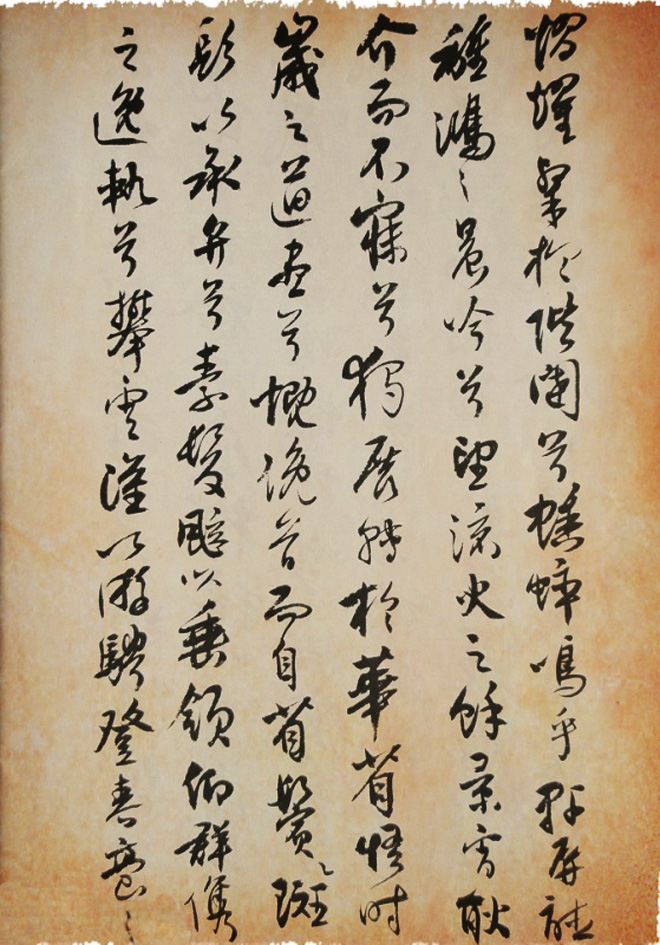 熠燿粲於階闥兮蟋蟀鳴乎軒屏聽
離鴻之晨吟兮望流火之餘景宵耿
介而不寐兮獨展轉於華省悟時
歲之遒盡兮慨俛首而自省鬢斑
髟以承弁兮素髮颯以垂領仰群儁
之逸軌兮攀雲漢以游騁登春臺之